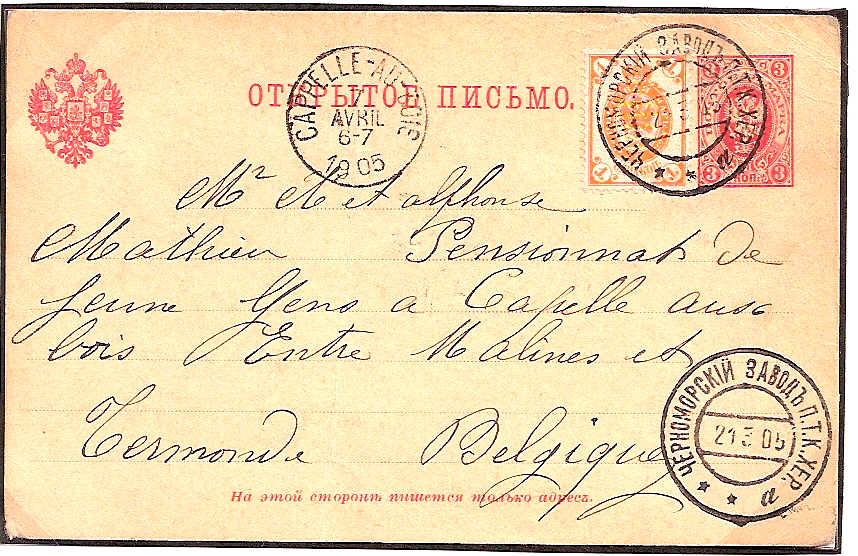 ОТКРЫТОЕ ПИСЬМО.
CAPPELLE-AU-BOIS
7
AVRIL
6-7
1905
ЧЕРНОМОРСКІЙ ЗАВОДЪ П.Т.К.ХЕР.
а
1
1
1
1
3
3
3
3
МАРКА
КОП.
Mr A et alphonse
Mathieu Pensionnat de
jeune Gens a Capelle aux
bois Entre Malines et
Termonde Belgique
ЧЕРНОМОРСКІЙ ЗАВОДЪ П.Т.К.ХЕР.
21 3 05
а
На этой сторонѣ пишется только адресъ.